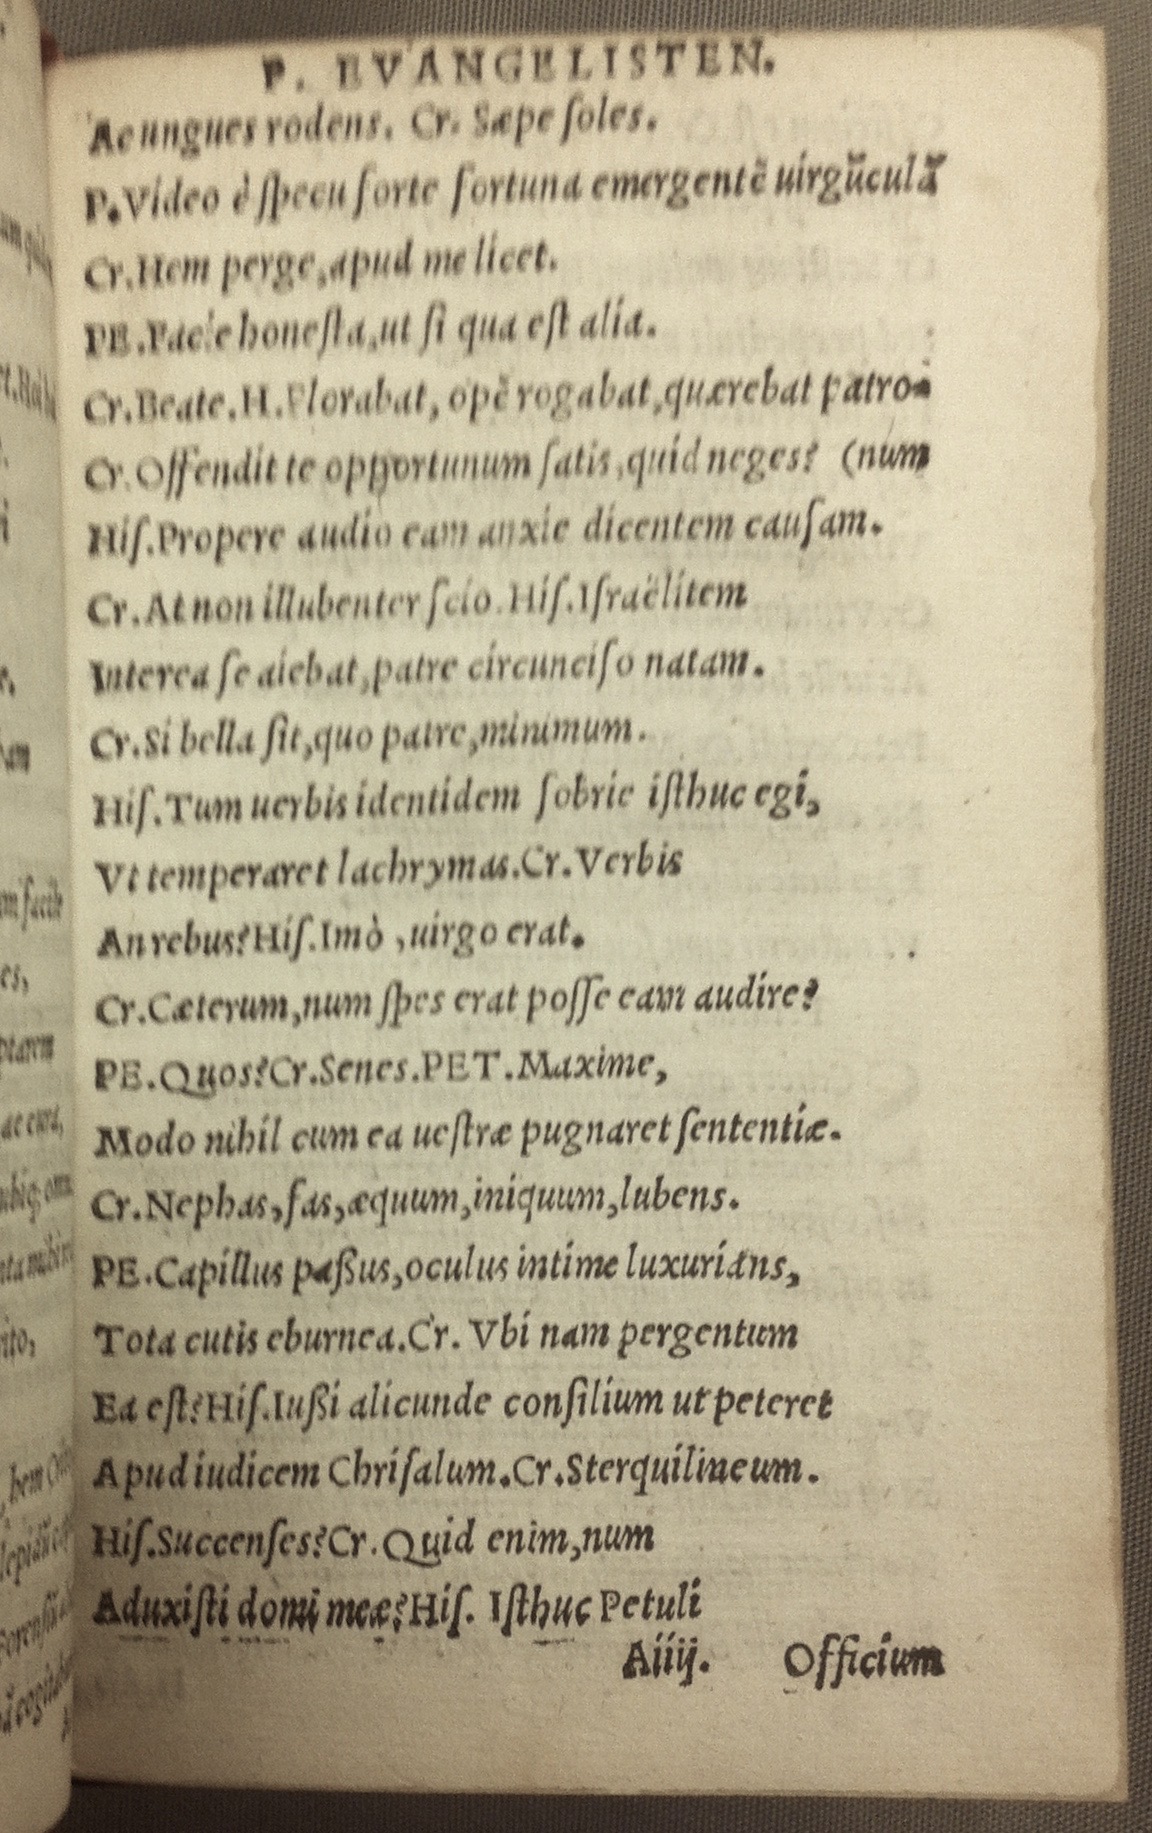 P. EVANGELISTEN.
Ac ungues rodens. Cr. Sæpe ſoles.
P. Video è ſpecu forte fortuna emergentẽ uirgũculã
Cr. Hem perge, apud me licet.
PE. Facie honeſta, ut ſi qua eſt alia.
Cr. Beate. H. Plorabat, opẽ rogabat, quærebat patro-
Cr. Offendit te opportunum ſatis, quid neges? (num
Hiſ. Propere audio eam anxie dicentem cauſam.
Cr. At non illubenter ſcio. Hiſ. Iſraëlitem
Interea ſe aiebat, patre circunciſo natam.
Cr. Si bella ſit, quo patre, minimum.
Hiſ. Tum uerbis identidem ſobrie iſthuc egi,
Vt temperaret lachrymas. Cr. Verbis
An rebus? Hiſ. Imò, uirgo erat.
Cr. Cæterum, num ſpes erat poſſe eam audire?
PE. Quos? Cr. Senes. PET. Maxime,
Modo nihil cum ea ueſtræ pugnaret ſententiæ.
Cr. Nephas, fas, æquum, iniquum, lubens.
PE. Capillus paßus, oculus intime luxuriãns,
Tota cutis eburnea. Cr. Vbi nam pergentum
Ea eſt? Hiſ. Iußi alicunde conſilium ut peteret
Apud iudicem Chriſalum. Cr. Sterquilineum.
Hiſ. Succenſes? Cr. Quid enim, num
Aduxiſti domi meæ? Hiſ. Iſthuc Petuli
Aiiij. Officium